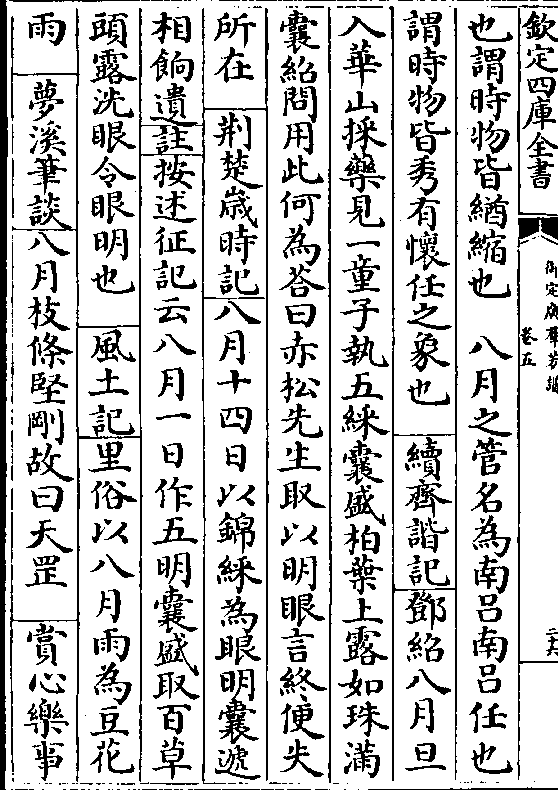 欽定四庫全書
御定廣群芳譜
卷五
也謂時物皆緧縮也　八月之管名為南呂南呂任也
謂時物皆秀有懷任之象也　續齊諧記鄧紹八月旦
入華山採藥見一童子執五綵囊盛柏葉上露如珠滿
囊紹問用此何為荅曰赤松先生取以明眼言終便失
所在　荆楚歲時記八月十四日以錦綵為眼明囊遞
相餉遺註按述征記云八月一日作五明囊盛取百草
頭露洗眼令眼明也　風土記里俗以八月雨為豆花
雨　夢溪筆談八月枝條堅剛故曰天罡　賞心樂事